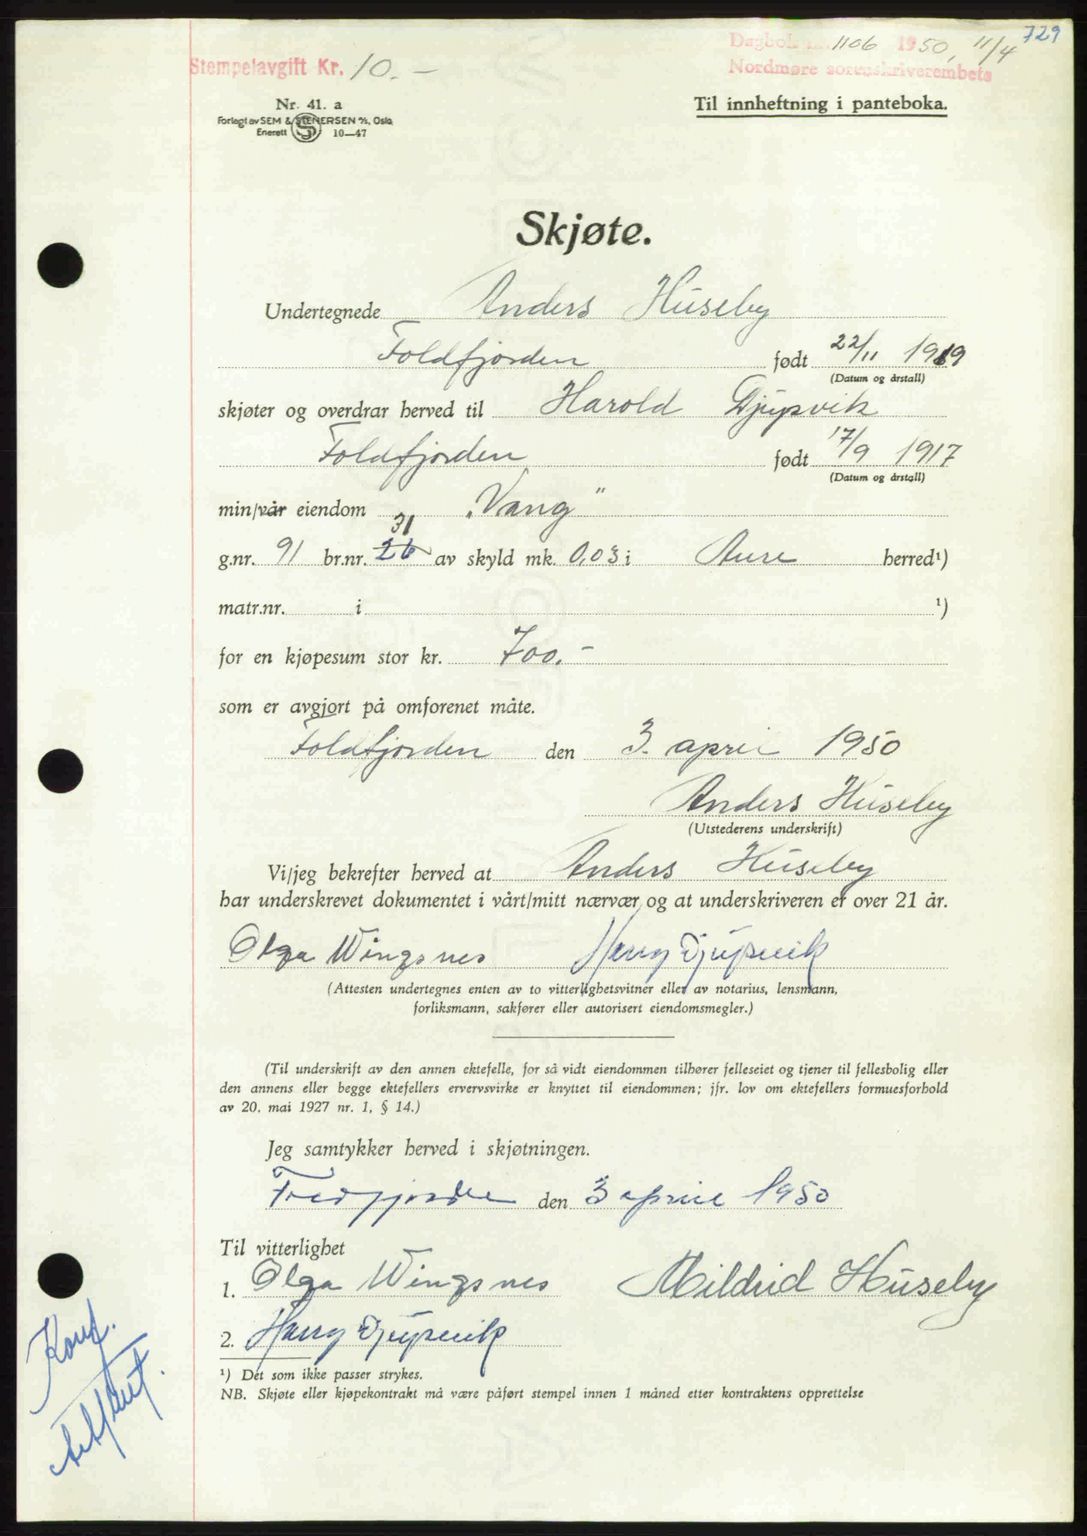 729
Dagbok nr. 1106 1950, 11/4
Nordmøre sorenskriverembete
Stempelavgift Kr. 10.-
Nr. 41. a
Forlagt av SEM & STENERSEN A/S, Oslo
Enerett S 10—47
Til innheftning i panteboka.
Skjøte.
Undertegnede Anders Huseby
Foldfjorden født 22/11 1919
(Datum og årstall)
skjøter og overdrar herved til Harold Djupsvik
Foldfjorden født 17/9 1917
(Datum og årstall)
min/vår eiendom „Vang"
31
g.nr. 91 br.nr. 26 av skyld mk. 0,03 i Aure herred¹)
matr.nr. i ¹)
for en kjøpesum stor kr. 700.-
som er avgjort på omforenet måte.
Foldfjorden den 3. april 1950
Anders Huseby
(Utstederens underskrift)
Vi/jeg bekrefter herved at Anders Huseby
har underskrevet dokumentet i vårt/mitt nærvær og at underskriveren er over 21 år.
Olga Wingsnes Harry Djupsvik
(Attesten undertegnes enten av to vitterlighetsvitner eller av notarius, lensmann,
forliksmann, sakfører eller autorisert eiendomsmegler.)
(Til underskrift av den annen ektefelle, for så vidt eiendommen tilhører felleseiet og tjener til fellesbolig eller
den annens eller begge ektefellers ervervsvirke er knyttet til eiendommen; jfr. lov om ektefellers formuesforhold
av 20. mai 1927 nr. 1, § 14.)
Jeg samtykker herved i skjøtningen.
Foldfjorden den 3 april 1950
Til vitterlighet
1. Olga Wingsnes Mildrid Huseby
2. Harry Djupsvik
¹) Det som ikke passer strykes.
NB. Skjøte eller kjøpekontrakt må være påført stempel innen 1 måned etter kontraktens opprettelse
Konf.